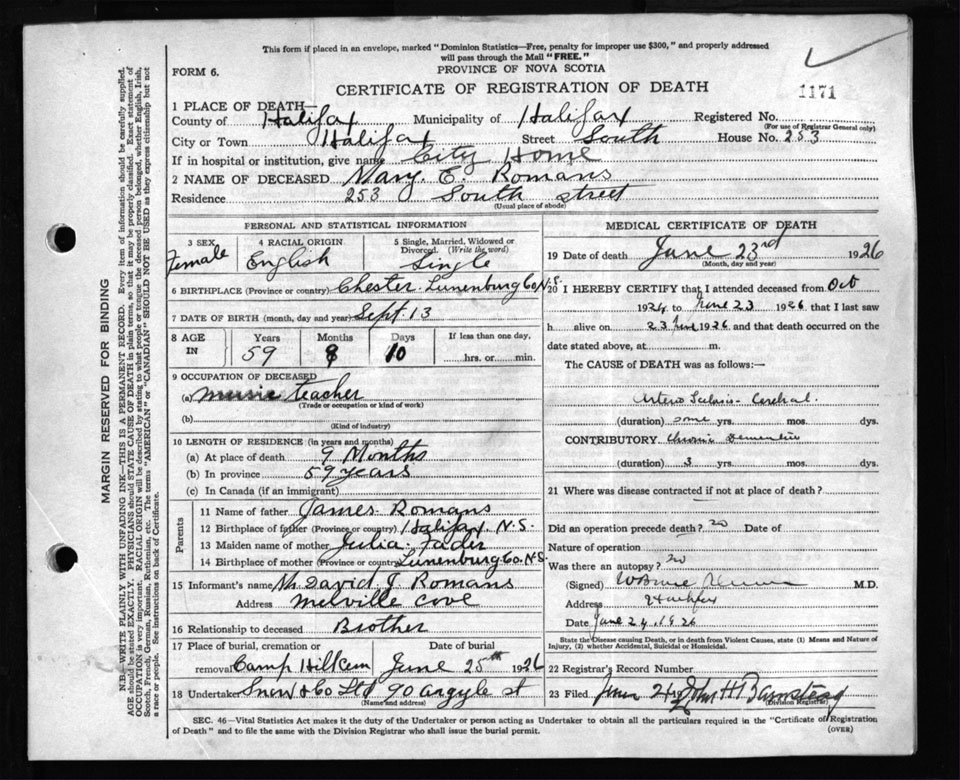 This form if placed in an envelope, marked "Dominion Statistics—Free, penalty for improper use $300," and properly addressed
will pass through the Mail "FREE."
PROVINCE OF NOVA SCOTIA
FORM 6.
CERTIFICATE OF REGISTRATION OF DEATH
1171
1 PLACE OF DEATH—
County of Halifax Municipality of Halifax Registered No.
(For use of Registrar General only)
City or Town Halifax Street South House No. 253
If in hospital or institution, give name City Home
2 NAME OF DECEASED Mary E. Romans
Residence 253 South street
(Usual place of abode)
PERSONAL AND STATISTICAL INFORMATION
3 SEX Female
4 RACIAL ORIGIN English
5 Single, Married, Widowed or Divorced. (Write the word) Single
6 BIRTHPLACE (Province or country) Chester Lunenburg Co N.S.
7 DATE OF BIRTH (month, day and year) Sept 13
8 AGE IN Years 59 Months 8 Days 10 If less than one day, hrs. or min.
9 OCCUPATION OF DECEASED
(a) music teacher
(Trade or occupation or kind of work)
(b)
(Kind of industry)
10 LENGTH OF RESIDENCE (in years and months)
(a) At place of death 9 Months
(b) In province 59 years
(c) In Canada (if an immigrant)
Parents
11 Name of father James Romans
12 Birthplace of father (Province or country) Halifax N.S.
13 Maiden name of mother Julia Fader
14 Birthplace of mother (Province or country) Lunenburg Co. N.S.
15 Informant's name Mr. David J. Romans
Address Melville Cove
16 Relationship to deceased Brother
17 Place of burial, cremation or removal Camp Hill Cem Date of burial June 25th 1926
18 Undertaker Snow & Co Ltd 90 Argyle st
(Name and address)
MEDICAL CERTIFICATE OF DEATH
19 Date of death June 23rd 1926
(Month, day and year)
20 I HEREBY CERTIFY that I attended deceased from Oct
1924 to June 23 1926 that I last saw
h alive on 23 June 1926 and that death occurred on
date stated above, at m.
The CAUSE of DEATH was as follows:
Arterio Sclerosis - Cerebral
(duration) some yrs. mos. dys.
CONTRIBUTORY Chronic Dementia
(duration) 3 yrs. mos. dys.
21 Where was disease contracted if not at place of death?
Did an operation precede death? no Date of
Nature of operation
Was there an autopsy? no
(Signed) M.D.
Address Halifax
Date June 24, 1926
State the Disease causing Death, or in death from Violent Causes, state (1) Means and Nature of
Injury, (2) whether Accidental, Suicidal or Homicidal.
22 Registrar's Record Number
23 Filed June 24 John H Barnstead
(Division Registrar)
SEC. 46—Vital Statistics Act makes it the duty of the Undertaker or person acting as Undertaker to obtain all the particulars required in the "Certificate of Registration
of Death" and to file the same with the Division Registrar who shall issue the burial permit.
(OVER)
MARGIN RESERVED FOR BINDING
N.B.—WRITE PLAINLY WITH UNFADING INK—THIS IS A PERMANENT RECORD. Every item of information should be carefully supplied.
AGE should be stated EXACTLY. PHYSICIANS should STATE CAUSE OF DEATH in plain terms, so that it may be properly classified. Exact statement of
OCCUPATION is very important. RACIAL ORIGIN will be described by stating to what people or tongue the deceased person belonged, whether English, Irish,
Scotch, French, German, Russian, Ruthenian, etc. The terms "AMERICAN" or "CANADIAN" SHOULD NOT BE USED as they express citizenship but not
a race or people. See instructions on back of Certificate.